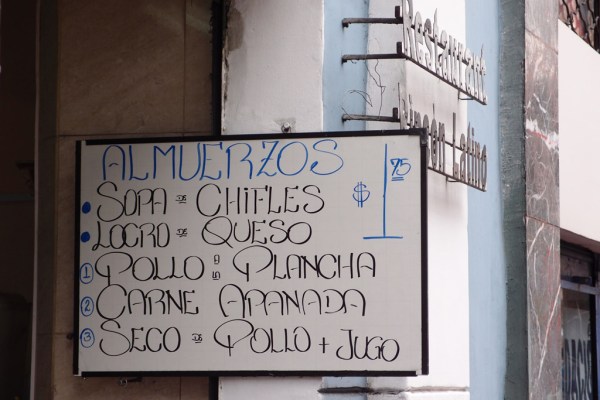 Restaurant
Rincón Latino
ALMUERZOS
SOPA DE CHIFLES $1.75
LOCRO DE QUESO
1 POLLO A LA PLANCHA
2 CARNE APANADA
3 SECO DE POLLO + JUGO